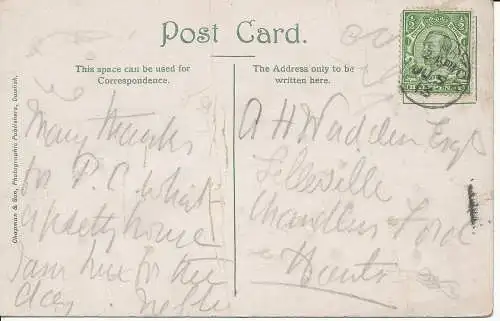 Post Card.
This space can be used for
Correspondence.
The Address only to be
written here.
Chapman & Son, Photographic Publishers, Dawlish.
Many thanks
for P.C. What
a pretty house
I am here for the
day. Nellie
A H Wadden Esq
Chandlers Ford
Hants